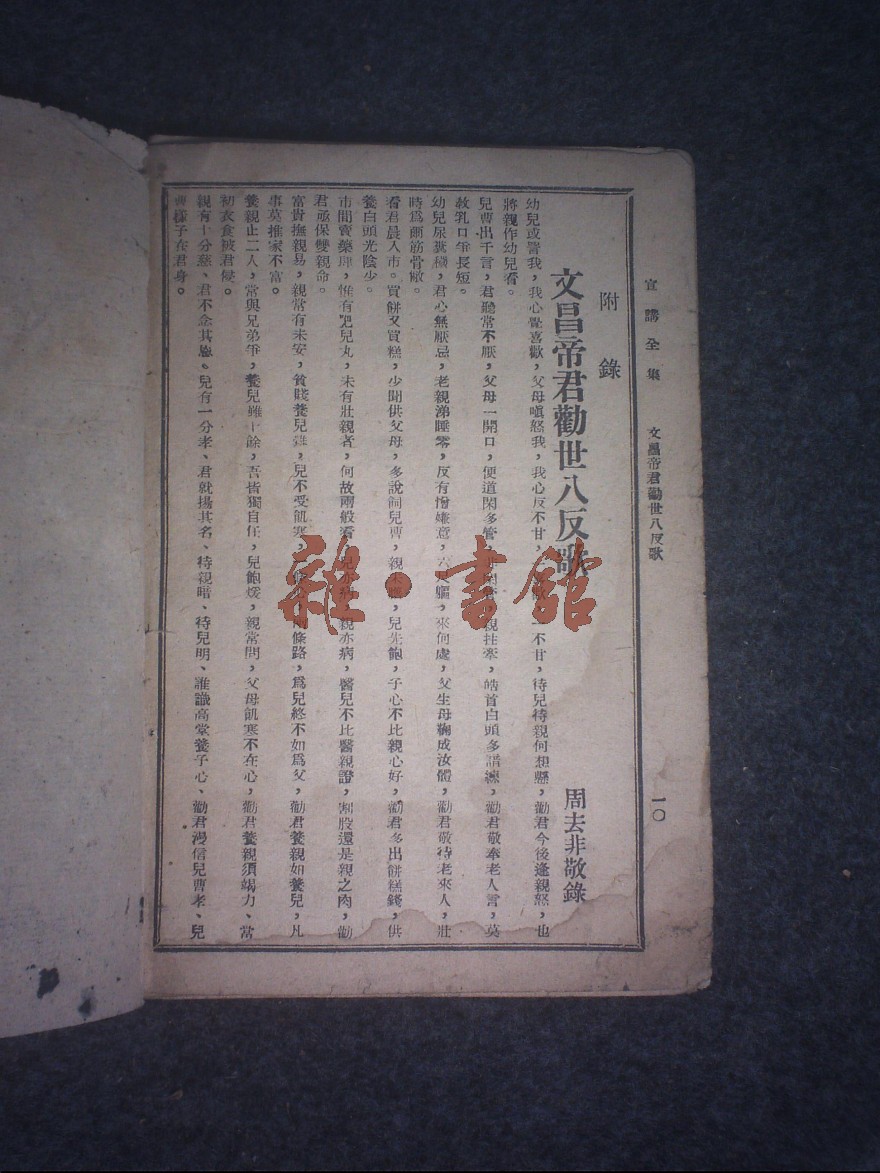 宣講全集 文昌帝君勸世八反歌 一〇
附錄
文昌帝君勸世八反歌 周去非敬錄
幼兒或詈我，我心覺喜歡，父母嗔怒我，我心反不甘，一不甘，待兒待親何想懸，勸君今後逢親怒，也
將親作幼兒看。
兒曹出千言，君聽常不厭，父母一開口，便道閑多管，親挂牽，皓首白頭多諳練，勸君敬奉老人言，莫
教乳口爭長短。
幼兒尿糞穢，君心無厭忌，老親涕唾零，反有憎嫌意，六尺軀，來何處，父生母鞠成汝體，勸君敬待老來人，壯
時爲爾筋骨敝。
看君晨入市。買餅又買糕，少聞供父母，多說飼兒曹，親未，兒先飽，子心不比親心好，勸君多出餅糕錢，供
養白頭光陰少。
市間賣藥肆，惟有肥兒丸，未有壯親者，何故兩般看，兒亦病，親亦病，醫兒不比醫親證，割股還是親之肉，勸
君亟保雙親命。
富貴撫親易，親常有未安，貧賤養兒難，兒不受飢寒，條路，爲兒終不如爲父，勸君養親如養兒，凡
事莫推家不富。
養親止二人，常與兄弟爭，養兒雖十餘，吾皆獨自任，兒飽煖，親常問，父母飢寒不在心，勸君養親須竭力、當
初衣食被君侵。
親有十分慈、君不念其恩、兒有一分孝、君就揚其名、待親暗、待兒明、誰識高堂養子心、勸君漫信兒曹孝、兒
曹樣子在君身。
雜·書館